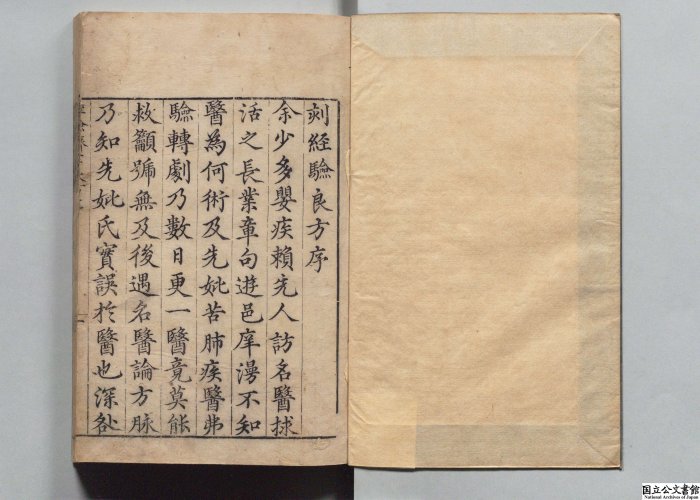 刻經驗良方序
余少多嬰疾賴先人訪名醫拯
活之長業章句遊邑庠漫不知
醫為何術及先妣苦肺疾醫弗
驗轉劇乃數日更一醫竟莫能
救籲號無及後遇名醫論方脉
乃知先妣氏實誤於醫也深咎
国立公文書館
National Archives of Japan